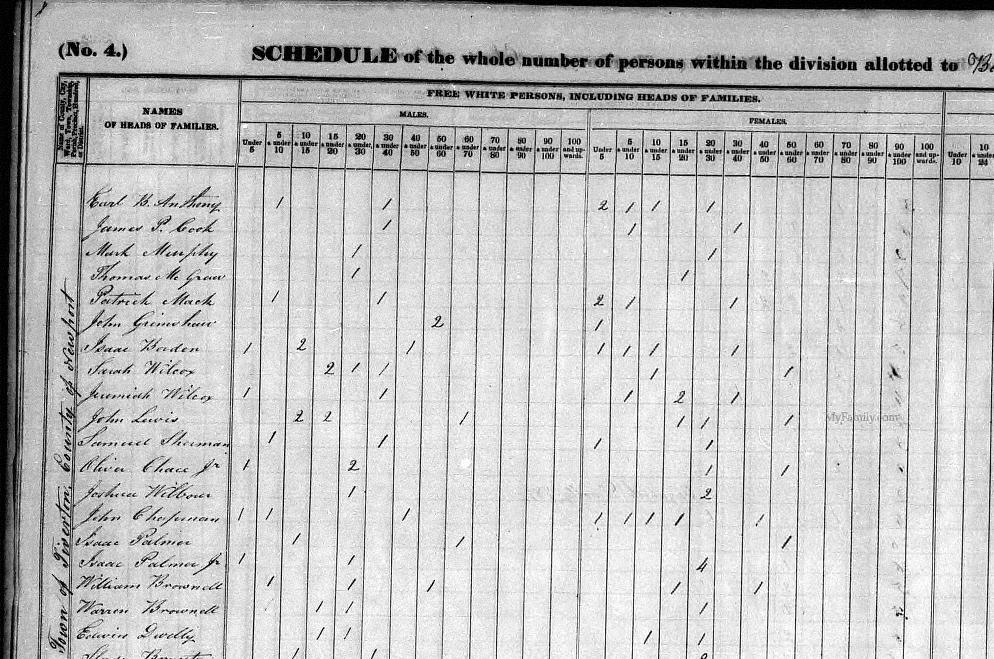 (No. 4.)
SCHEDULE of the whole number of persons within the division allotted to
Name of County, City, Ward, Town, Township, Parish, Precinct, Hundred, or District.
NAMES
OF HEADS OF FAMILIES.
FREE WHITE PERSONS, INCLUDING HEADS OF FAMILIES.
MALES.
FEMALES.
Under 5 5 & under 10 10 & under 15 15 & under 20 20 & under 30 30 & under 40 40 & under 50 50 & under 60 60 & under 70 70 & under 80 80 & under 90 90 & under 100 100 and upwards. Under 5 5 & under 10 10 & under 15 15 & under 20 20 & under 30 30 & under 40 40 & under 50 50 & under 60 60 & under 70 70 & under 80 80 & under 90 90 & under 100 100 and upwards. Under 10 10 & under 24
Town of Tiverton, County of Newport
Earl B. Anthony 1 1 2 1 1 1
James P. Cook 1 1 1
Mark Murphy 1 1
Thomas Mc Graw 1 1
Patrick Mack 1 1 2 1 1
John Grimshaw 2 1
Isaac Borden 1 2 1 1 1 1 1
Sarah Wilcox 2 1 1 1 1
Jeremiah Wilcox 1 1 1 2 1
John Lewis 2 2 1 1 1 1
Samuel Sherman 1 1 1 1
Oliver Chace Jr 1 2 1 1
Joshua Wilbour 1 2
John Chapman 1 1 1 1 1 1 1 1
Isaac Palmer 1 1 1
Isaac Palmer Jr 1 1 4
William Brownell 1 1 1 1 1
Warren Brownell 1 1 1
Edwin Dwelly 1 1 1 1
MyFamily.com